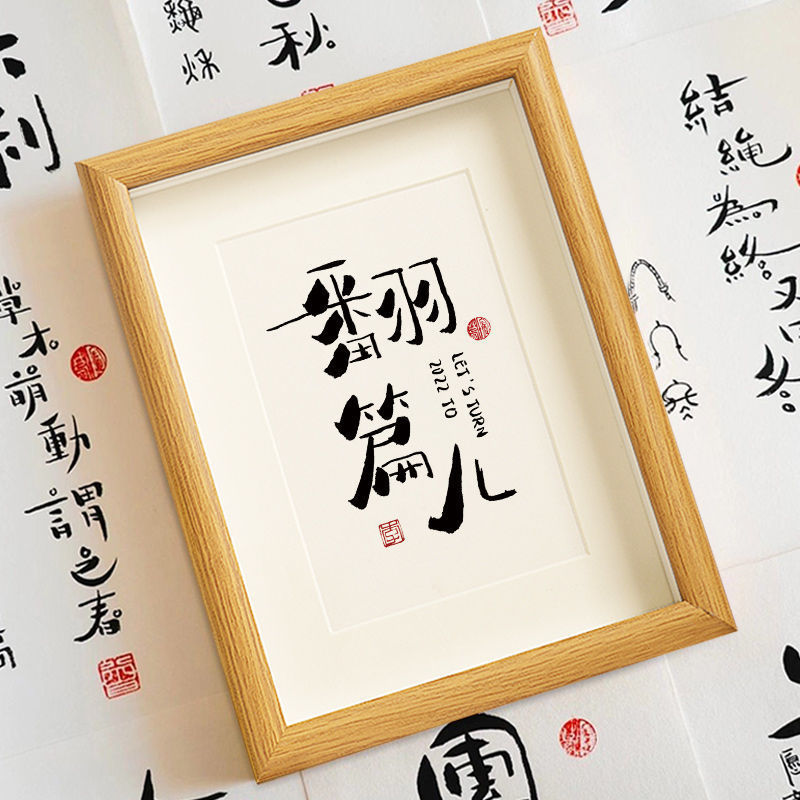 翻篇儿
LET'S TURN
2022 TO
秋。
利
結繩為終。
又曰冬
草木。
萌動
謂之春。